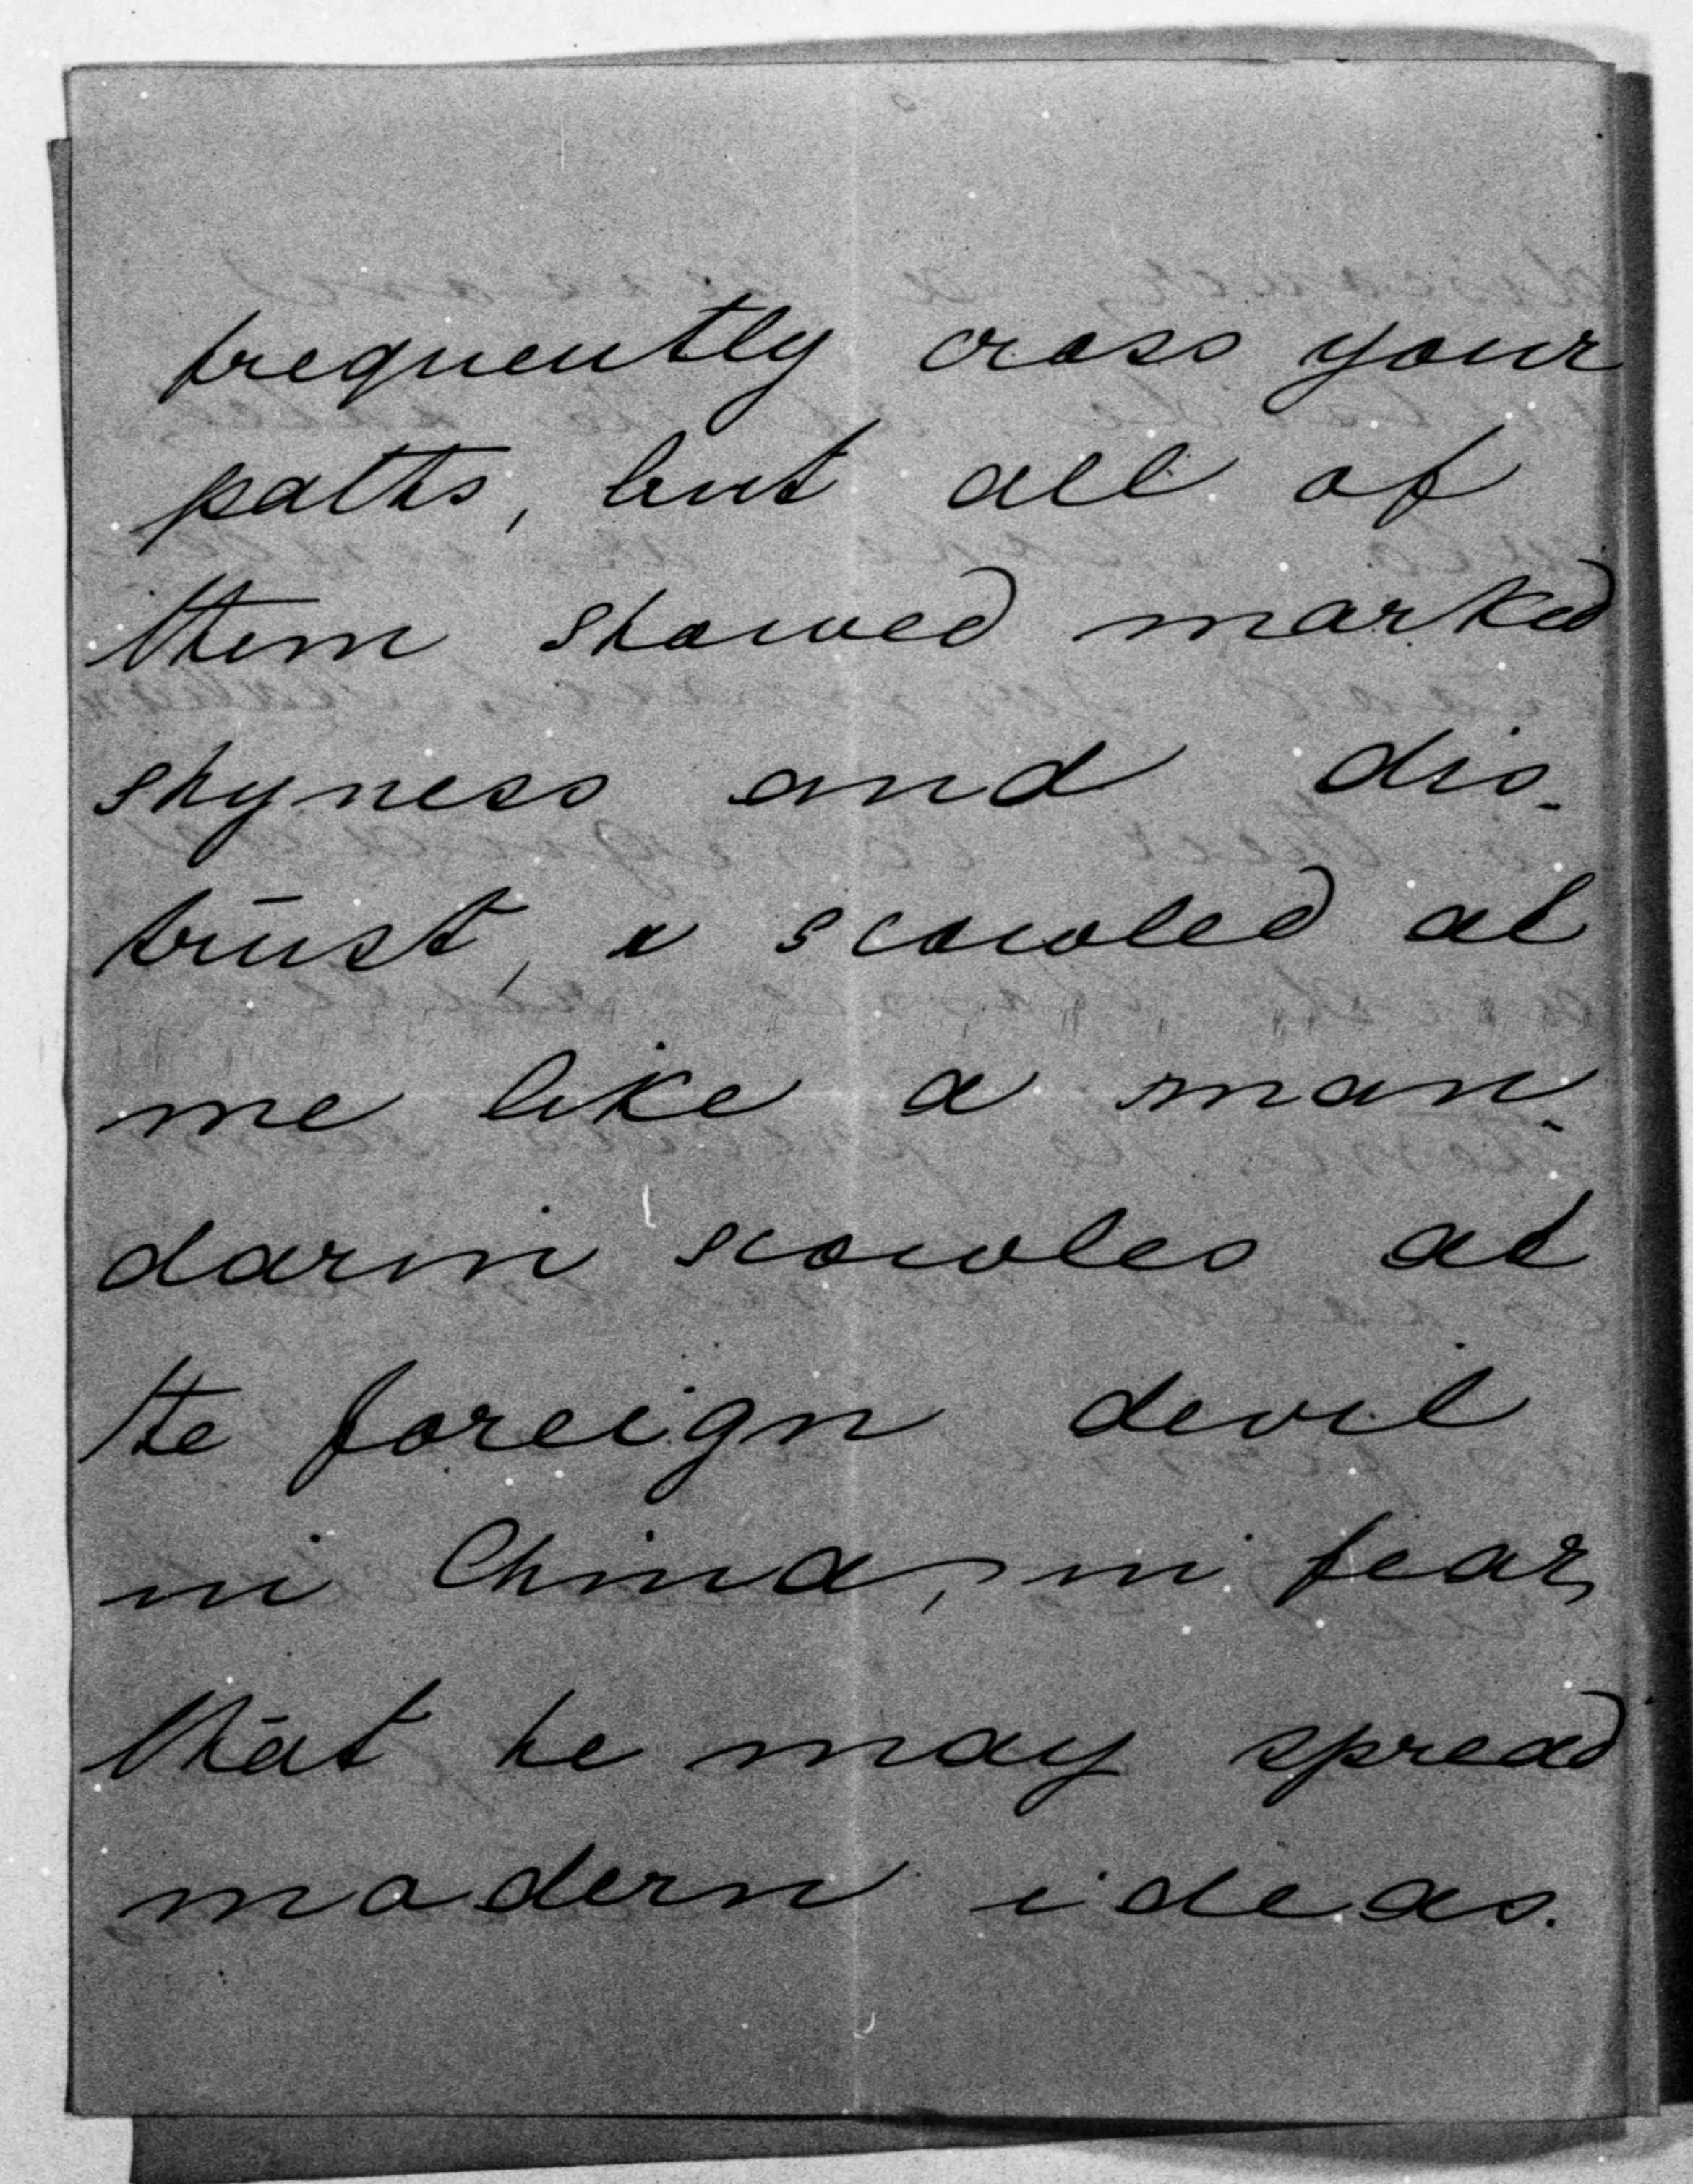 frequently cross your
paths, but all of
them showed marked
shyness and dis-
trust, & scowled at
me like a man-
darin scowles at
the foreign devil
in China, in fear,
that he may spread
modern ideas.